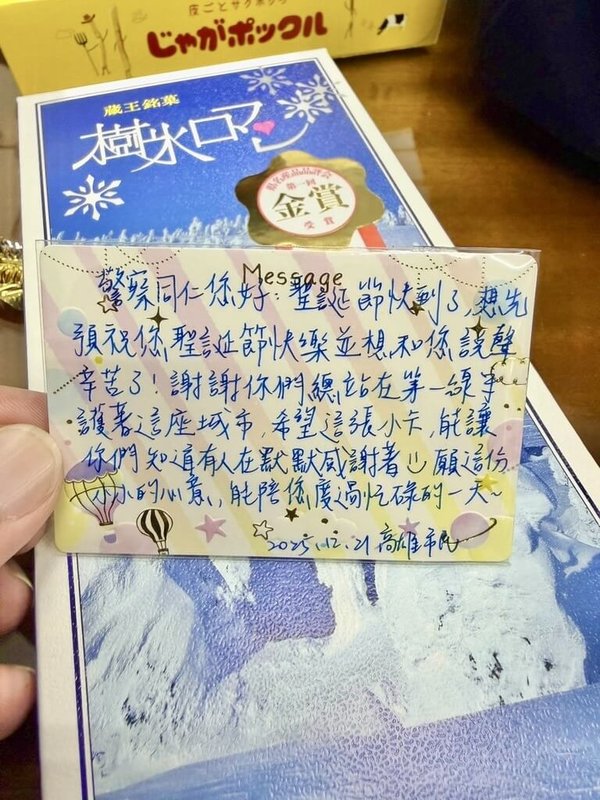 皮ごとサクポックリ
じゃがポックル
蔵王銘菓
樹氷ロマン
県名産品品評会
第一回
金賞
受賞
Message
警察同仁你好：聖誕節快到了，想先
預祝您聖誕節快樂並想和您說聲
辛苦了！謝謝你們總站在第一線守
護著這座城市，希望這張小卡，能讓
你們知道有人在默默感謝著☺願這份
小小的心意，能陪您度過忙碌的一天~
2025.12.21 高雄市民